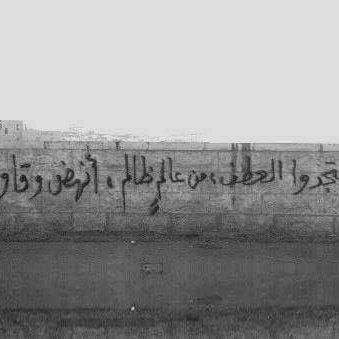 تجدوا العطف ، من عالم ظالم ، أنهض وقاو